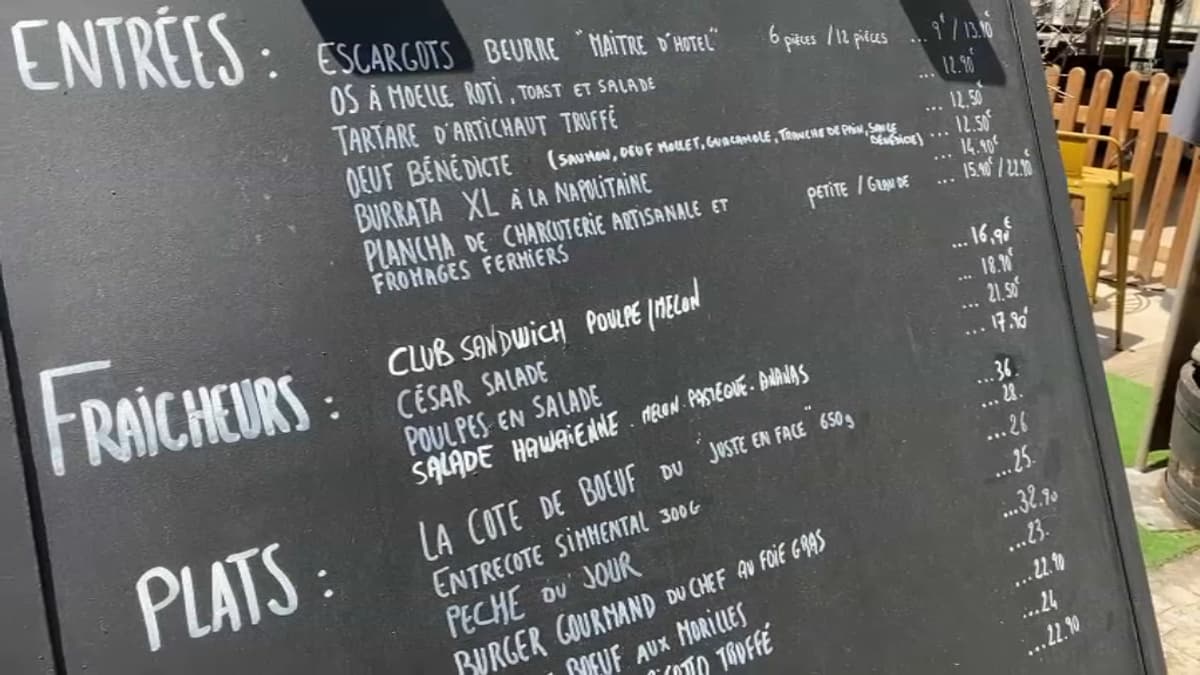 ENTRÉES : ESCARGOTS BEURRE "MAITRE D'HOTEL" 6 pièces / 12 pièces ... 9€ / 13.90€
OS À MOELLE ROTI, TOAST ET SALADE ... 12.90€
TARTARE D'ARTICHAUT TRUFFÉ ... 12.50€
OEUF BÉNÉDICTE (SAUMON, OEUF MOLLET, GUACAMOLE, TRANCHE DE PAIN, SAUCE BÉNÉDICTE) ... 12.50€
BURRATA XL À LA NAPOLITAINE ... 14.90€
PLANCHA DE CHARCUTERIE ARTISANALE ET PETITE / GRANDE ... 15.90€ / 22.90
FROMAGES FERMIERS
FRAÎCHEURS : CLUB SANDWICH POULPE / MELON ... 16,90€
CÉSAR SALADE ... 18.90€
POULPES EN SALADE ... 21.50€
SALADE HAWAIENNE . MELON . PASTÈQUE . ANANAS ... 17.90€
PLATS : LA COTE DE BOEUF DU "JUSTE EN FACE" 650g ... 36.
ENTRECOTE SIMMENTAL 300G ... 28.
PECHE DU JOUR ... 26
BURGER GOURMAND DU CHEF AU FOIE GRAS ... 25.
BOEUF AUX MORILLES ... 32.90
TRUFFÉ ... 23.
... 22.90
... 24
... 22.90